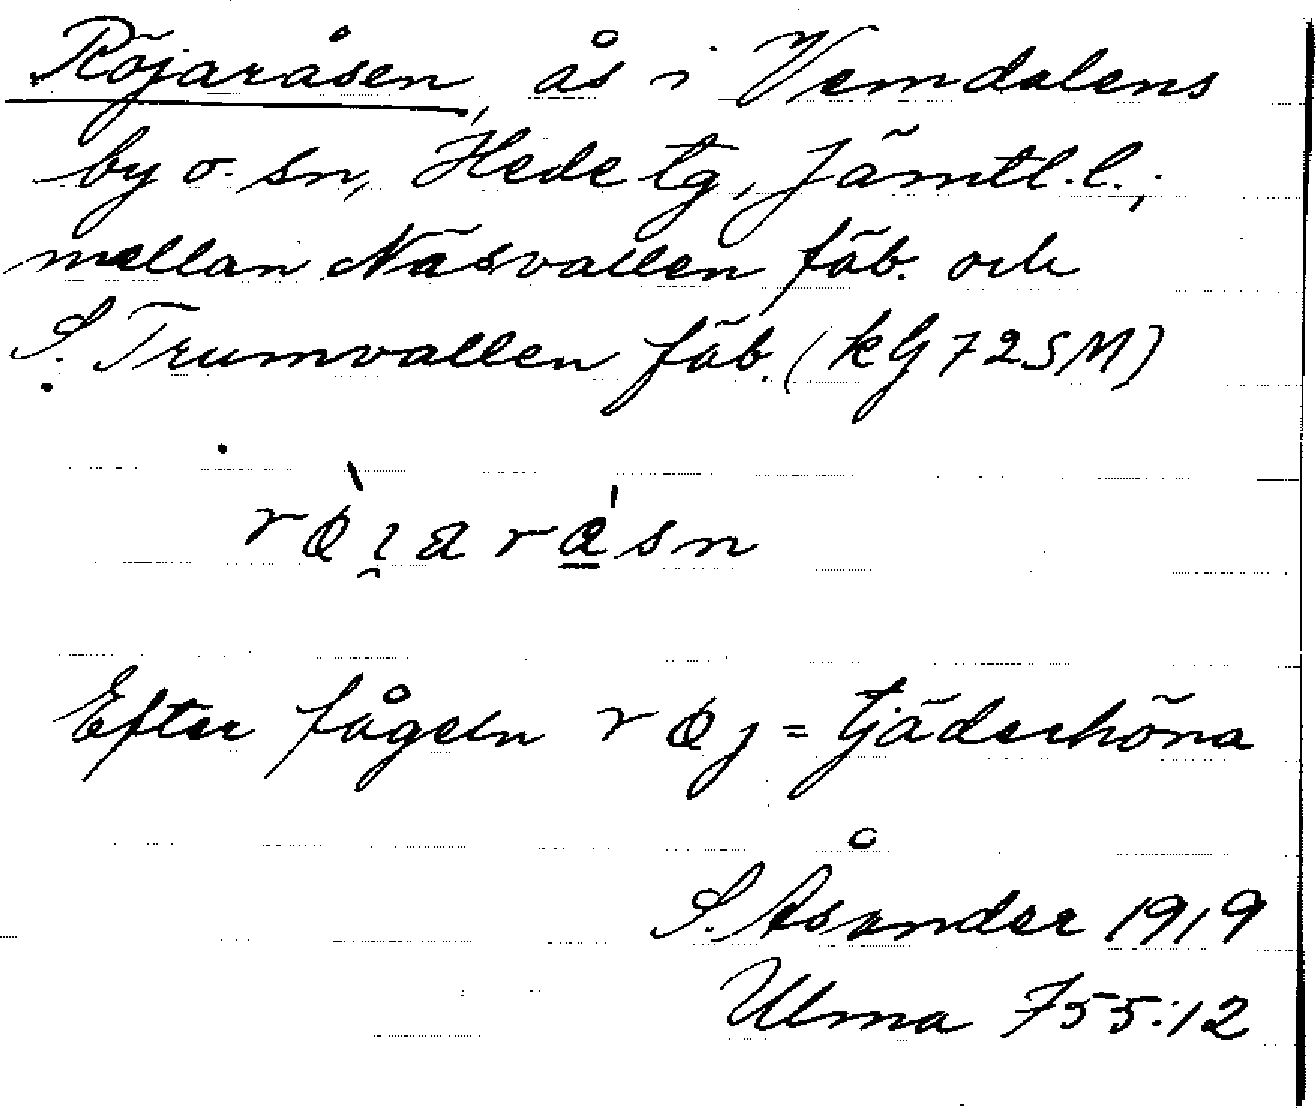 Röjaråsen, ås i Vemdalens
by o. sn, Hede tg, Jämtl. l.,
mellan Näsvallen fäb. och
S. Trumvallen fäb. (kG 72SM)
rø̀i̯arà̱́sn
Efter fågeln røj = tjäderhöna
S. Åsander 1919
Ulma 755:12